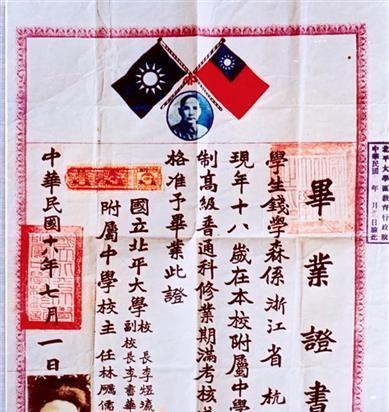 畢業證書
學生錢學森係浙江省杭
現年十八歲在本校附屬中學
制高級普通科修業期滿考核
格准予畢業此證
國立北平大學校長李煜瀛
副校長李書華
附屬中學校主任林礪儒
中華民國十八年七月一日
北平大學教育行政院
中華民國 年 月 日